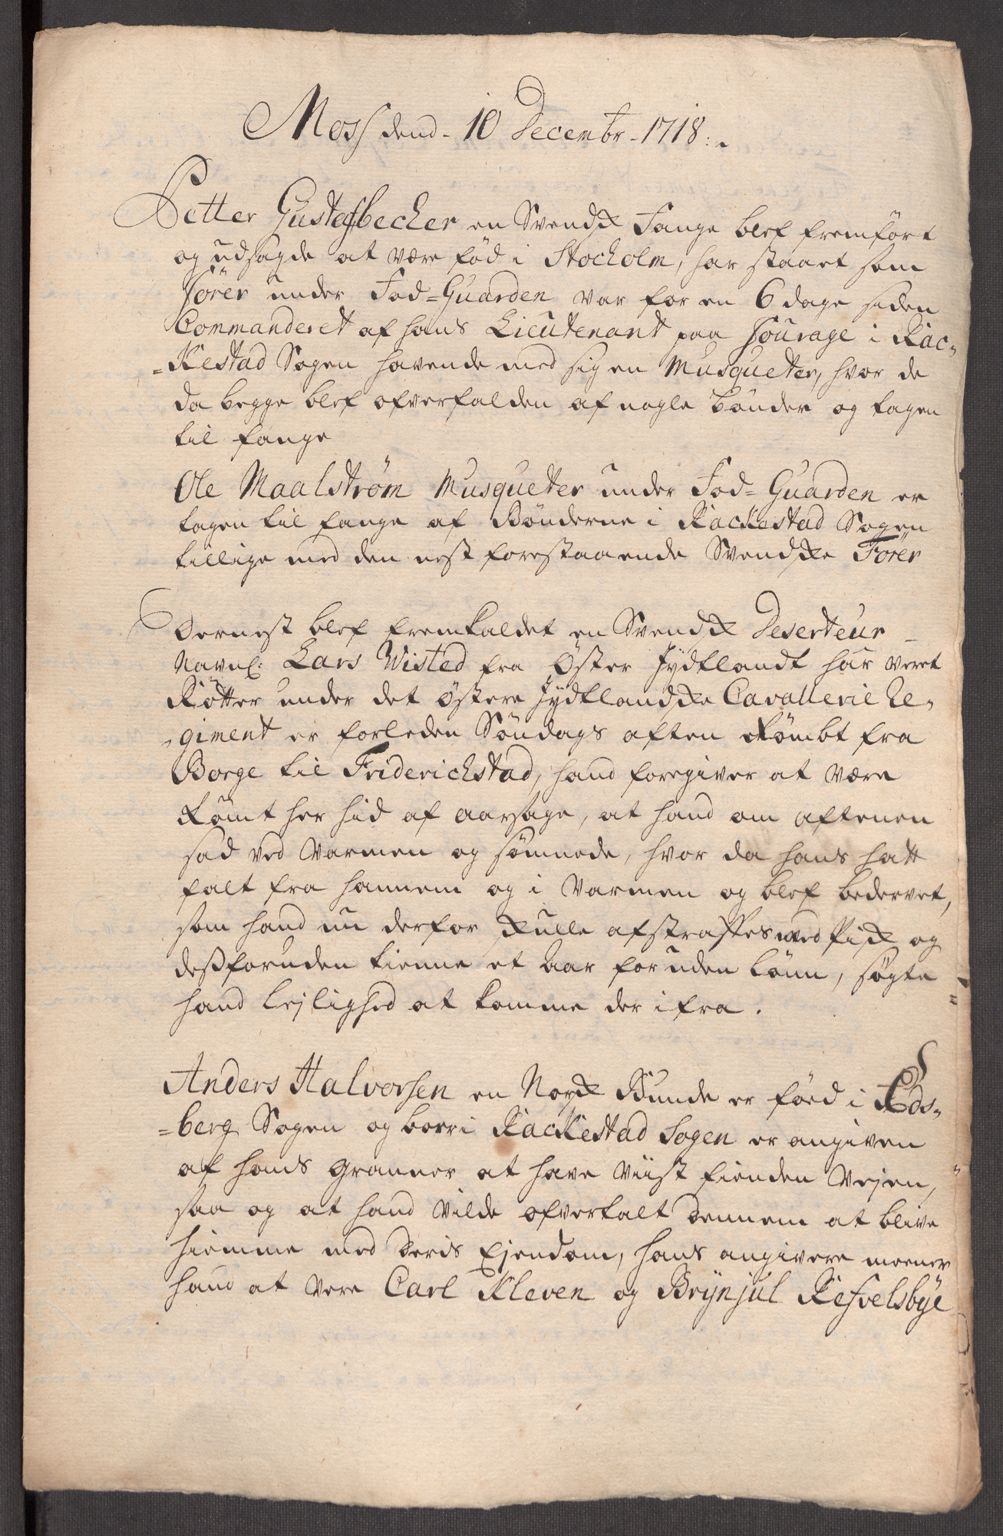 Moss dend 10 Decembr 1718:
Petter Gustafbecker en Svendsk Fange blef fremført
og udsagde at være fød i Stocholm, har staaet som
förer under Fod-Guarden var for en 6 dage siden
Commanderet af hans Lieutenant paa fourage i Rac-
-kestad Sogen havende med sig en Musqueter, hvor de
da begge blef ofverfalden af nogle bønder og tagen
til fange
Ole Maalstrøm Musqueter under Fod-Guarden er
tagen til fange af Bønderne i Rackestad Sogen
tillige med den nest forestaaende Svendske Förer
Dernest blef fremkaldet en Svendsk Deserteur
Navnl: Lars Wisted fra Øster Jydtlandt har veret
Rÿtter under det østere Jydtlandske Cavallerie Re-
-giment er forleden Söndags aften Römbt fra
Borge til Friderichstad, hand foregiver at være
Römt her hid af aarsage, at hand om aftenen
sad ved Varmen og sömnede, hvor da hans hatt
falt fra hannem og i Varmen og blef bedervet,
som hand nu derfor skulle afstraffes med Pisk og
dessforuden tienne et Aar foruden Lönn, søgte
hand Lejlighed at komme der ifra.
Anders Halvorsen en Norsk Bunde er föed i Eds-
-berg Sogen og boer i Rackestad Sogen er angiven
af hans granner at have viist fienden Vejen,
saa og at hand vilde ofvertalt dennem at blive
hiemme med deris Ejendom, hans angivere meener
hand at vere Carl Kleven og Brÿnjul Refvelsbÿe